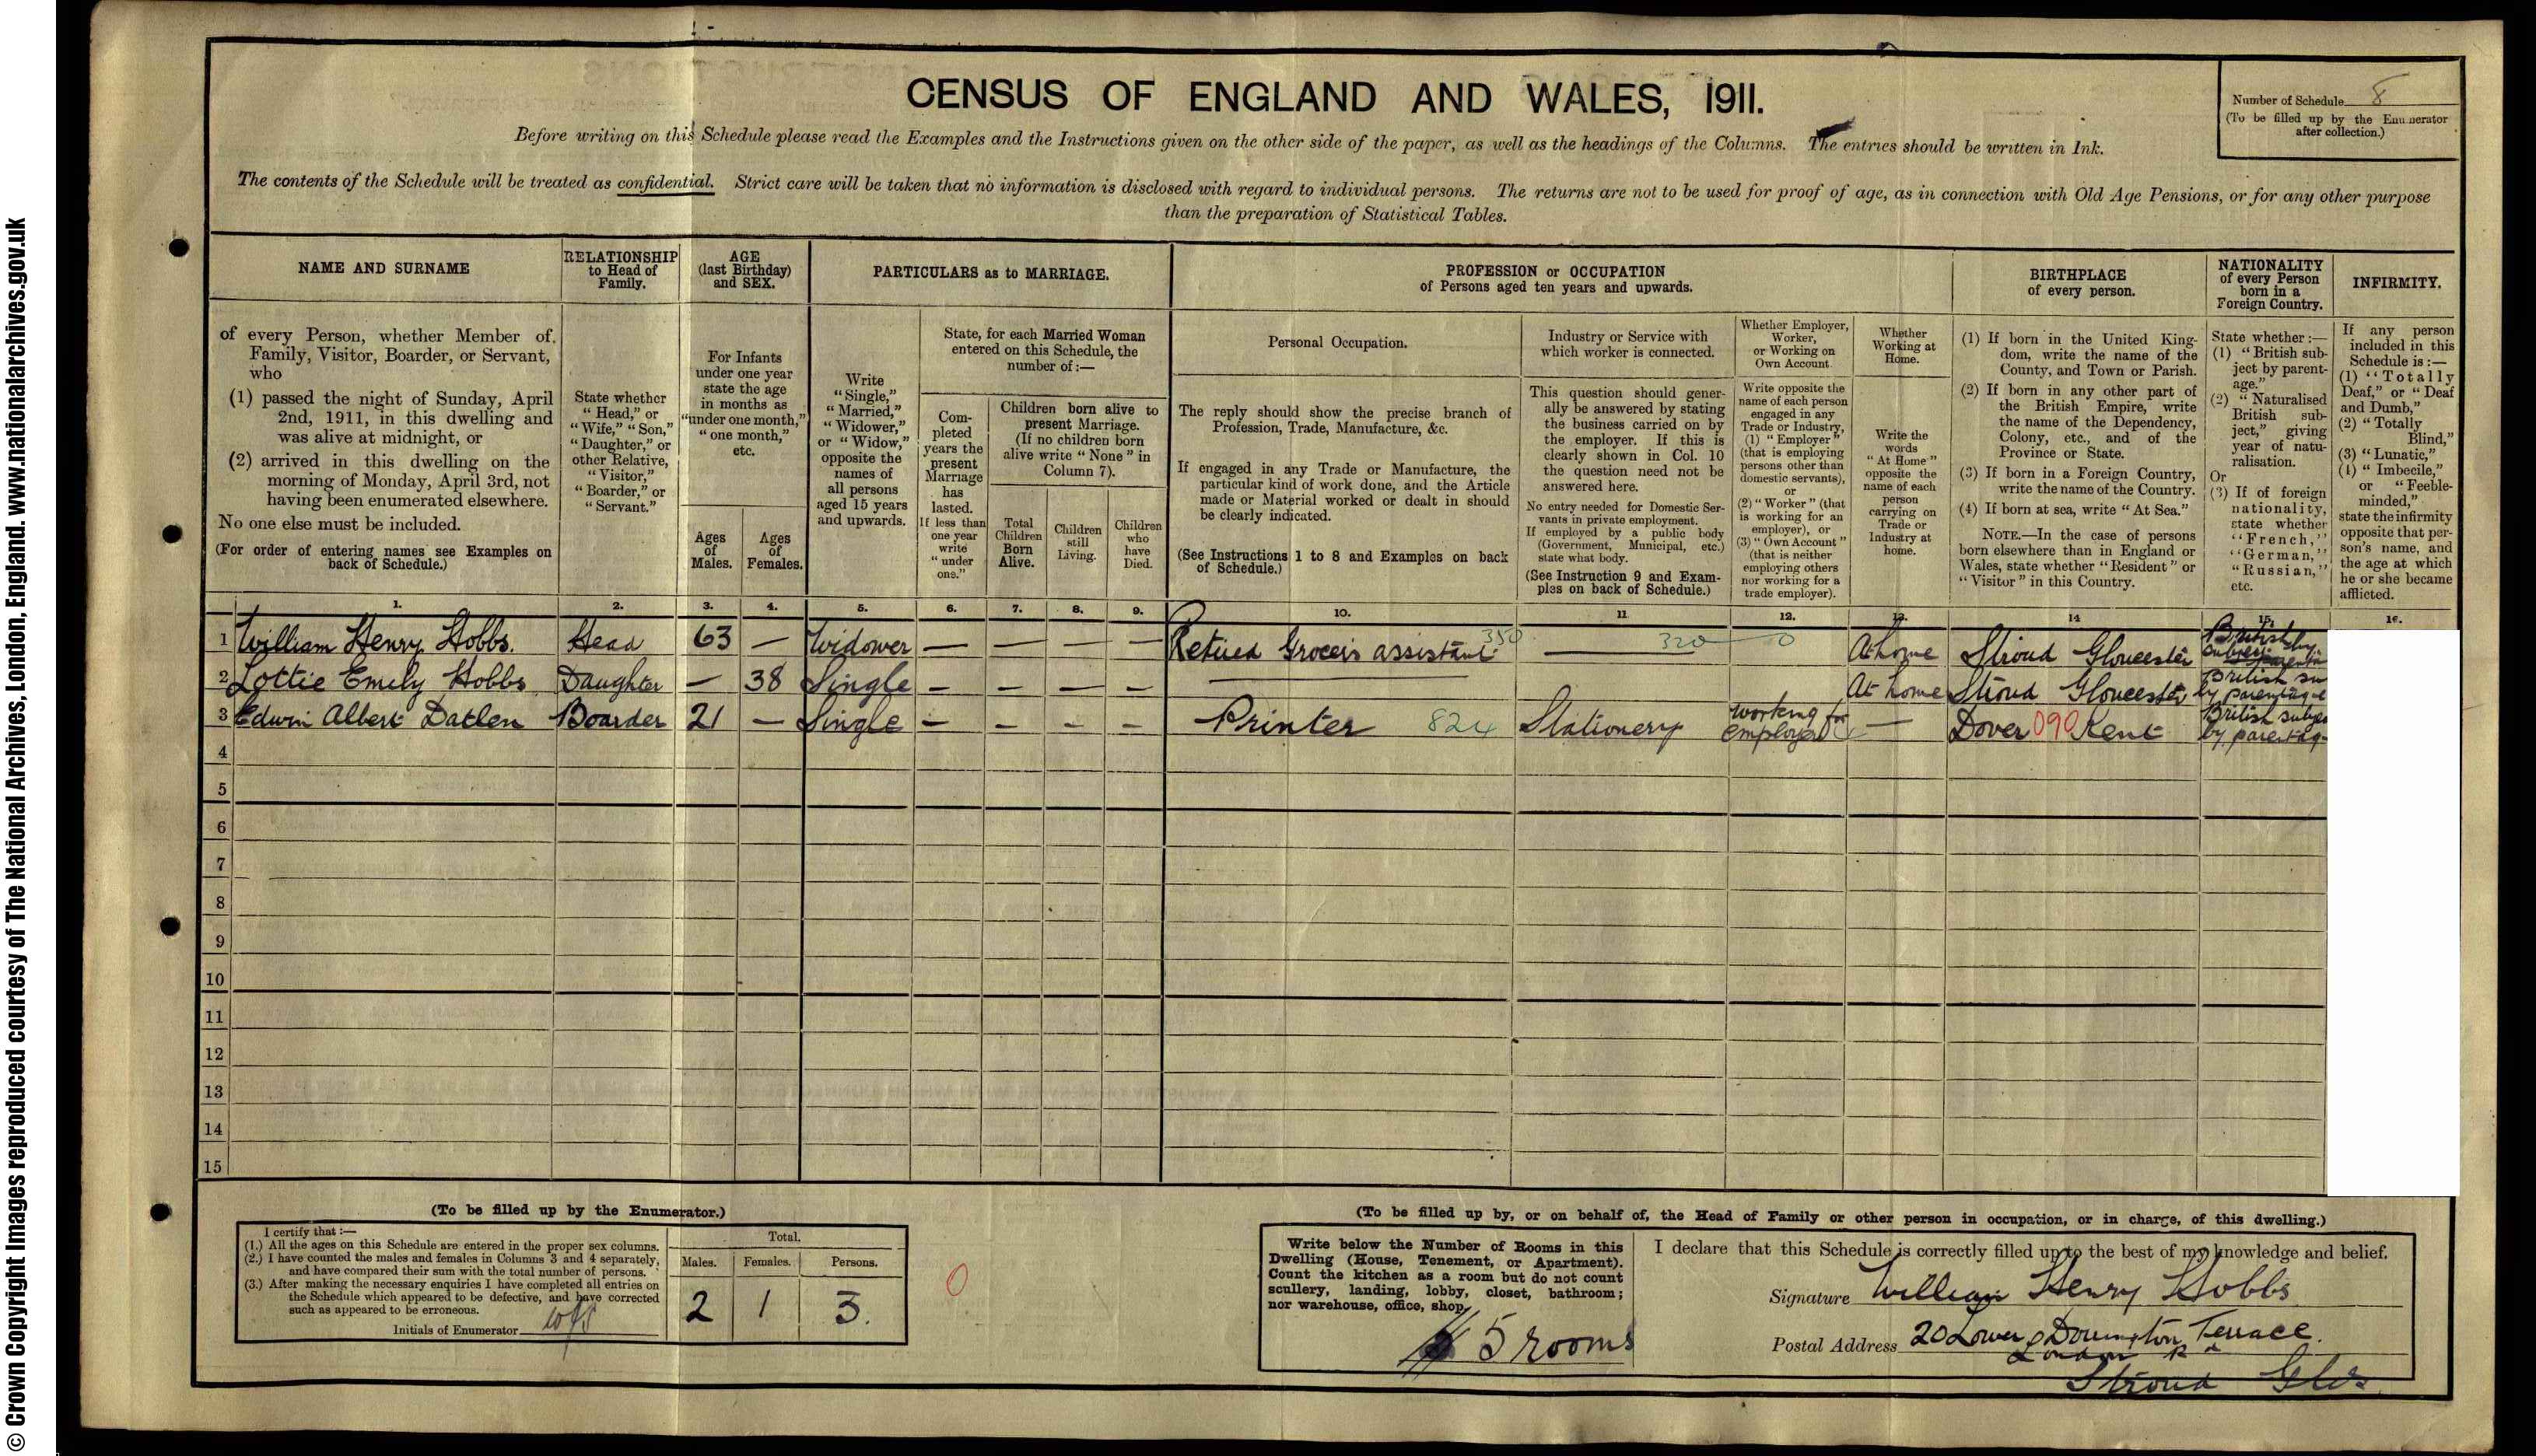 © Crown Copyright Images reproduced courtesy of The National Archives, London, England. www.nationalarchives.gov.uk
CENSUS OF ENGLAND AND WALES, 1911.
Number of Schedule 8
(To be filled up by the Enumerator
after collection.)
Before writing on this Schedule please read the Examples and the Instructions given on the other side of the paper, as well as the headings of the Columns. The entries should be written in Ink.
The contents of the Schedule will be treated as confidential. Strict care will be taken that no information is disclosed with regard to individual persons. The returns are not to be used for proof of age, as in connection with Old Age Pensions, or for any other purpose
than the preparation of Statistical Tables.
NAME AND SURNAME
of every Person, whether Member of
Family, Visitor, Boarder, or Servant,
who
(1) passed the night of Sunday, April
2nd, 1911, in this dwelling and
was alive at midnight, or
(2) arrived in this dwelling on the
morning of Monday, April 3rd, not
having been enumerated elsewhere.
No one else must be included.
(For order of entering names see Examples on
back of Schedule.)
RELATIONSHIP
to Head of
Family.
State whether
"Head," or
"Wife," "Son,"
"Daughter," or
other Relative,
"Visitor,"
"Boarder," or
"Servant."
AGE
(last Birthday)
and SEX.
For Infants
under one year
state the age
in months as
"under one month,"
"one month,"
etc.
Ages
of
Males.
Ages
of
Females.
PARTICULARS as to MARRIAGE.
Write
"Single,"
"Married,"
"Widower,"
or "Widow,"
opposite the
names of
all persons
aged 15 years
and upwards.
State, for each Married Woman
entered on this Schedule, the
number of:—
Com-
pleted
years the
present
Marriage
has
lasted.
If less than
one year
write
"under
one."
Children born alive to
present Marriage.
(If no children born
alive write "None" in
Column 7).
Total
Children
Born
Alive.
Children
still
Living.
Children
who
have
Died.
PROFESSION or OCCUPATION
of Persons aged ten years and upwards.
Personal Occupation.
The reply should show the precise branch of
Profession, Trade, Manufacture, &c.
If engaged in any Trade or Manufacture, the
particular kind of work done, and the Article
made or Material worked or dealt in should
be clearly indicated.
(See Instructions 1 to 8 and Examples on back
of Schedule.)
Industry or Service with
which worker is connected.
This question should gener-
ally be answered by stating
the business carried on by
the employer. If this is
clearly shown in Col. 10
the question need not be
answered here.
No entry needed for Domestic Ser-
vants in private employment.
If employed by a public body
(Government, Municipal, etc.)
state what body.
(See Instruction 9 and Exam-
ples on back of Schedule.)
Whether Employer,
Worker,
or Working on
Own Account.
Write opposite the
name of each person
engaged in any
Trade or Industry,
(1) "Employer"
(that is employing
persons other than
domestic servants),
or
(2) "Worker" (that
is working for an
employer), or
(3) "Own Account"
(that is neither
employing others
nor working for a
trade employer).
Whether
Working at
Home.
Write the
words
"At Home"
opposite the
name of each
person
carrying on
Trade or
Industry at
home.
BIRTHPLACE
of every person.
(1) If born in the United King-
dom, write the name of the
County, and Town or Parish.
(2) If born in any other part of
the British Empire, write
the name of the Dependency,
Colony, etc., and of the
Province or State.
(3) If born in a Foreign Country,
write the name of the Country.
(4) If born at sea, write "At Sea."
NOTE.—In the case of persons
born elsewhere than in England or
Wales, state whether "Resident" or
"Visitor" in this Country.
NATIONALITY
of every Person
born in a
Foreign Country.
State whether:—
(1) "British sub-
ject by parent-
age."
(2) "Naturalised
British sub-
ject," giving
year of natu-
ralisation.
Or
(3) If of foreign
nationality,
state whether
"French,"
"German,"
"Russian,"
etc.
INFIRMITY.
If any person
included in this
Schedule is:—
(1) "Totally
Deaf," or "Deaf
and Dumb,"
(2) "Totally
Blind,"
(3) "Lunatic,"
(4) "Imbecile,"
or "Feeble-
minded,"
state the infirmity
opposite that per-
son's name, and
the age at which
he or she became
afflicted.
1. 2. 3. 4. 5. 6. 7. 8. 9. 10. 11 12. 13. 14 15. 16.
1 William Henry Hobbs. Head 63 — Widower — — — — Retired Grocer's assistant 350 — 320 0 At home Stroud Gloucester British subject by parentage
2 Lottie Emily Hobbs Daughter — 38 Single — — — — — At home Stroud Gloucester British su by parentage
3 Edwin Albert Datlen Boarder 21 — Single — — — — Printer 824 Stationery working for employer — Dover 090 Kent British subjec by parentag
4
5
6
7
8
9
10
11
12
13
14
15
(To be filled up by the Enumerator.)
I certify that:—
(1.) All the ages on this Schedule are entered in the proper sex columns.
(2.) I have counted the males and females in Columns 3 and 4 separately,
and have compared their sum with the total number of persons.
(3.) After making the necessary enquiries I have completed all entries on
the Schedule which appeared to be defective, and have corrected
such as appeared to be erroneous.
Initials of Enumerator
Total.
Males. Females. Persons.
2 1 3.
0
(To be filled up by, or on behalf of, the Head of Family or other person in occupation, or in charge, of this dwelling.)
Write below the Number of Rooms in this
Dwelling (House, Tenement, or Apartment).
Count the kitchen as a room but do not count
scullery, landing, lobby, closet, bathroom;
nor warehouse, office, shop.
5 rooms
I declare that this Schedule is correctly filled up to the best of my knowledge and belief.
Signature William Henry Hobbs
Postal Address 20 Lower Dorrington Terrace.
London Rd
Stroud Glos.